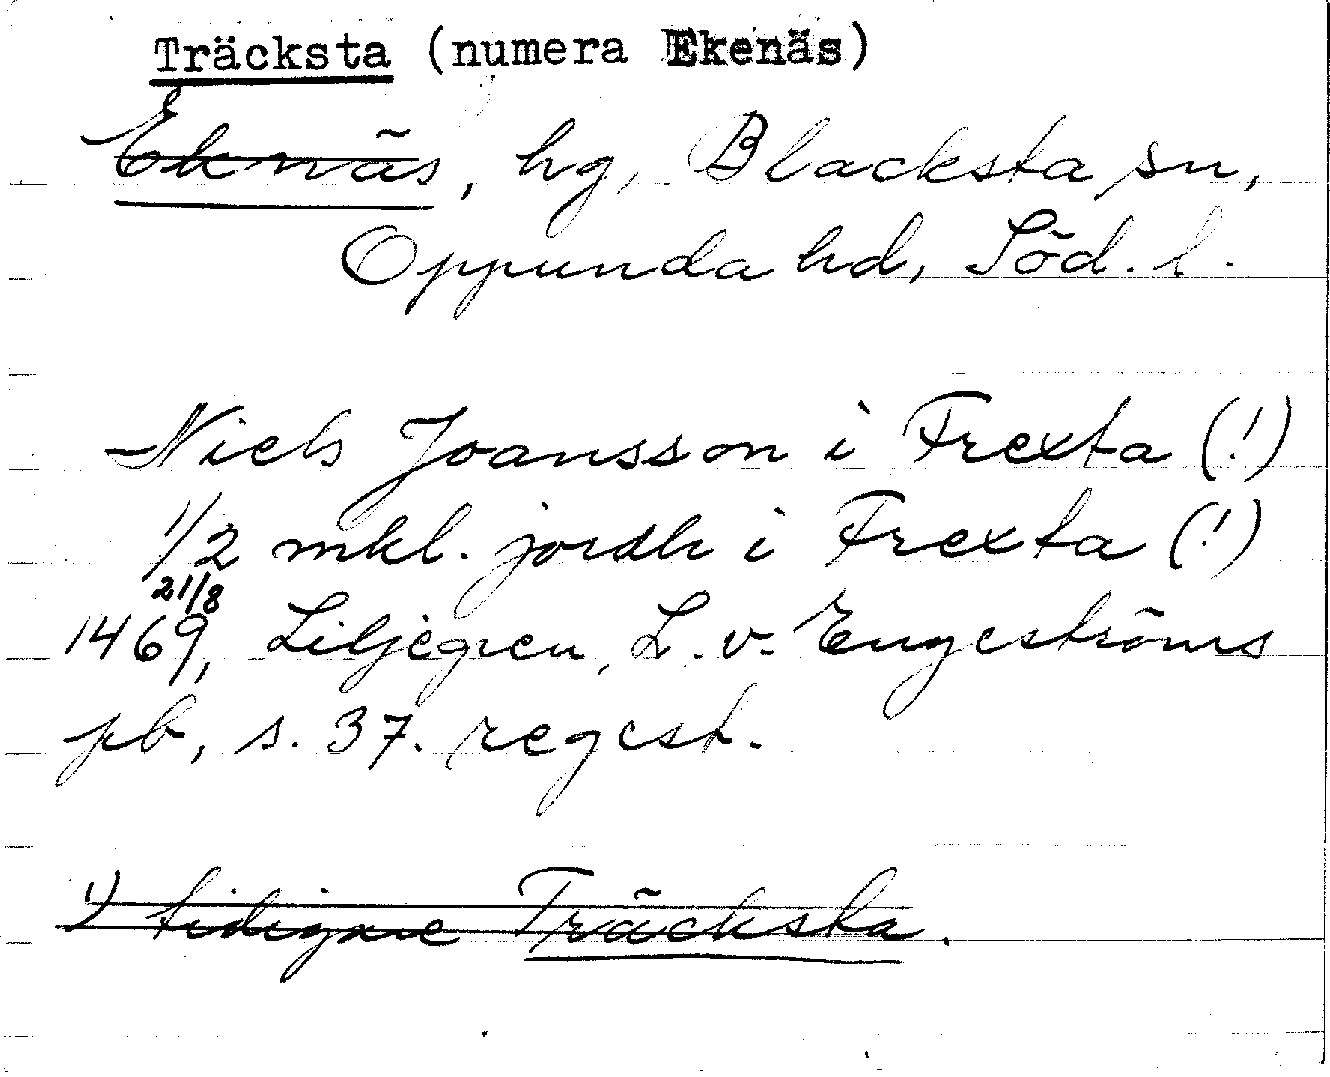 Träcksta (numera Ekenäs)
Eknäs, hg, Blacksta sn,
Oppunda hd, Söd. l.
Niels Joansson i Frexta (!)
1/2 mkl. jordh i Frexta (!)
21/8
1469, Liljegren, L. v. Engeströms
pb, s. 37. regest.
1) tidigare Träcksta.